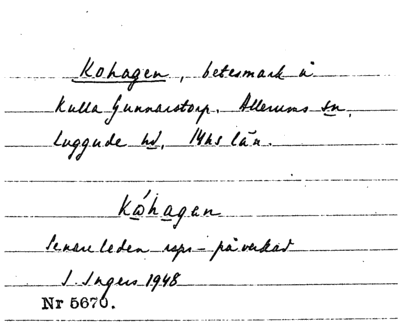 Kohagen, betesmark å
Kulla Gunnarstorp. Allerums sn,
Luggude hd, Mhs län.
Kóhagan
Senare leden rspr-påverkad
I. Ingers 1948
Nr 5670.